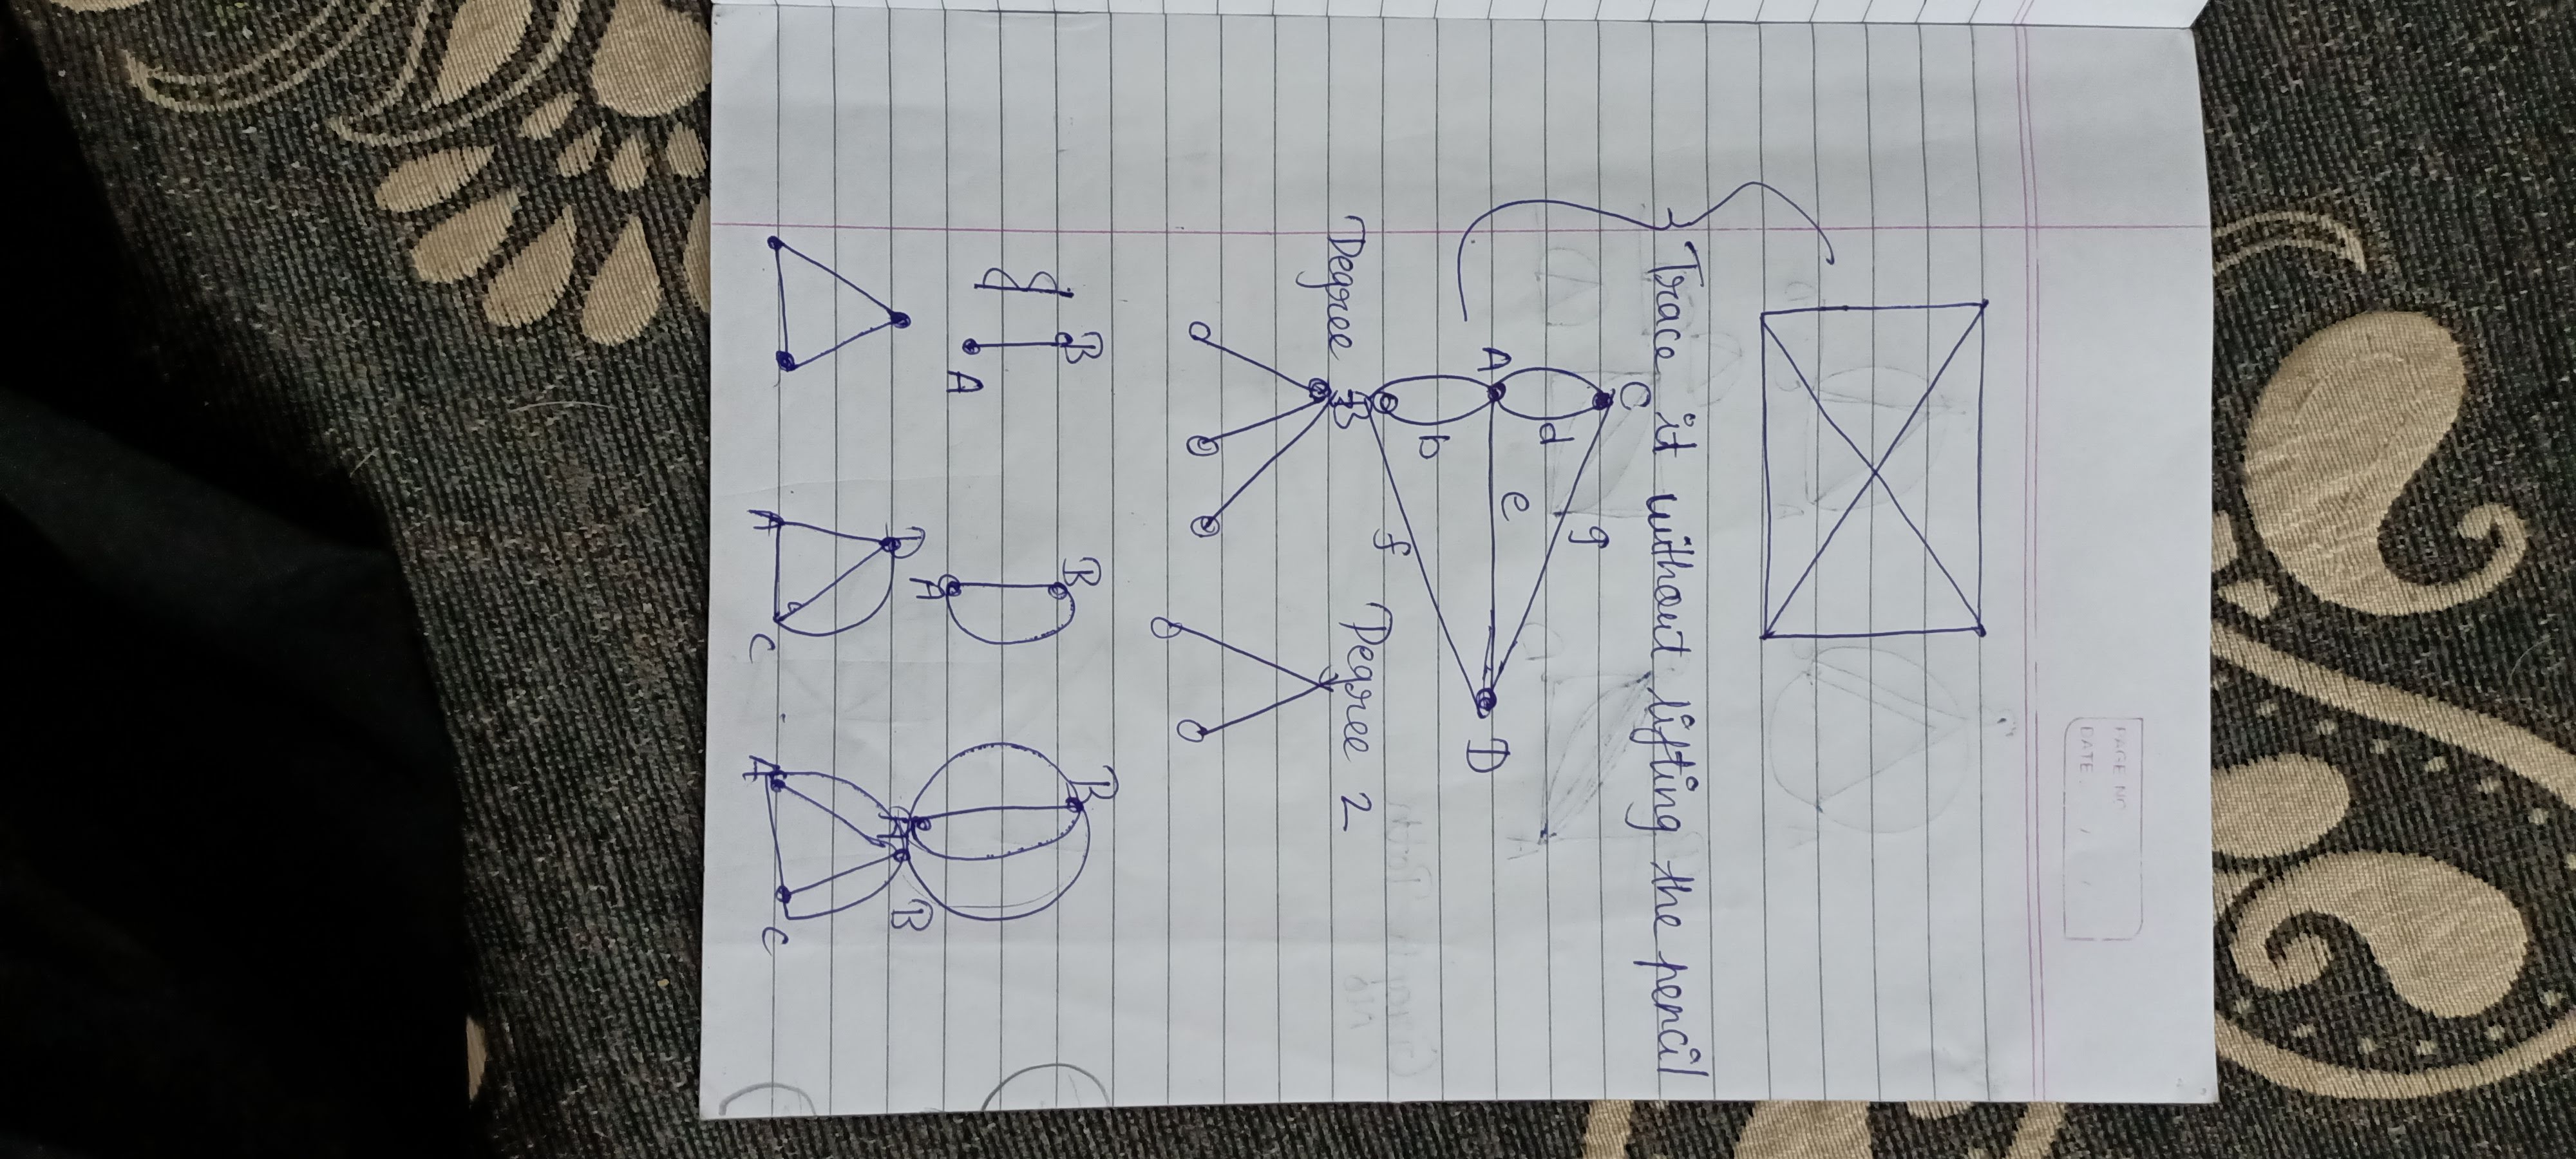 PAGE NO.
DATE
Trace it without lifting the pencil
C
g
d
A
e
D
b
B
f
Degree 3
Degree 2
B
A
B
A
B
A
B
A
C
B
A
C